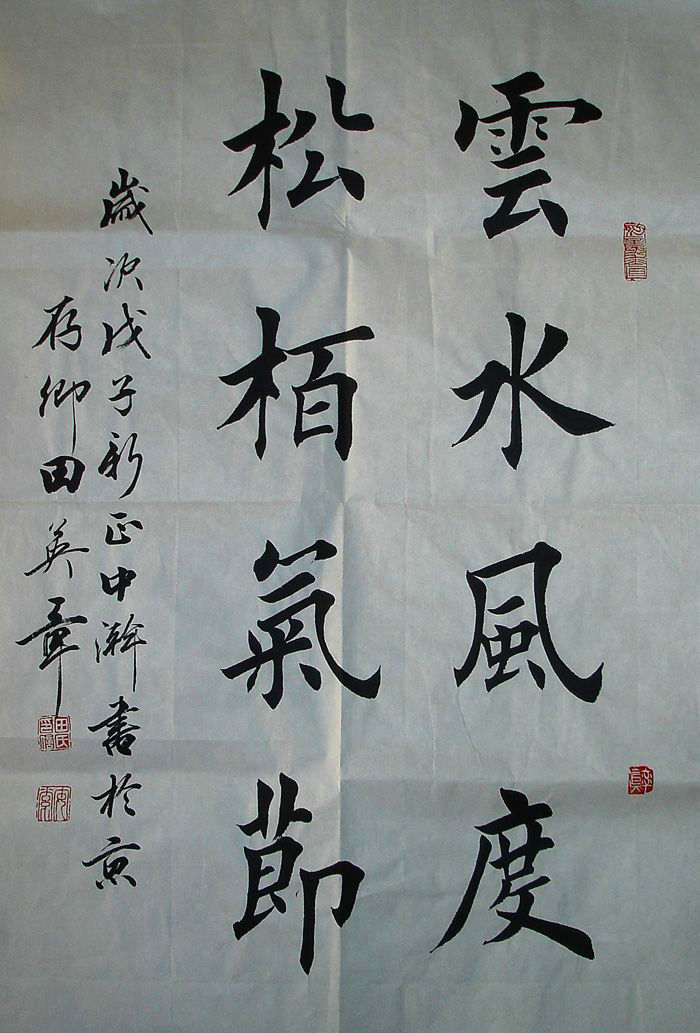 雲水風度
松栢氣節
歲次戊子新正中瀚書於京
存卿田英章
田氏